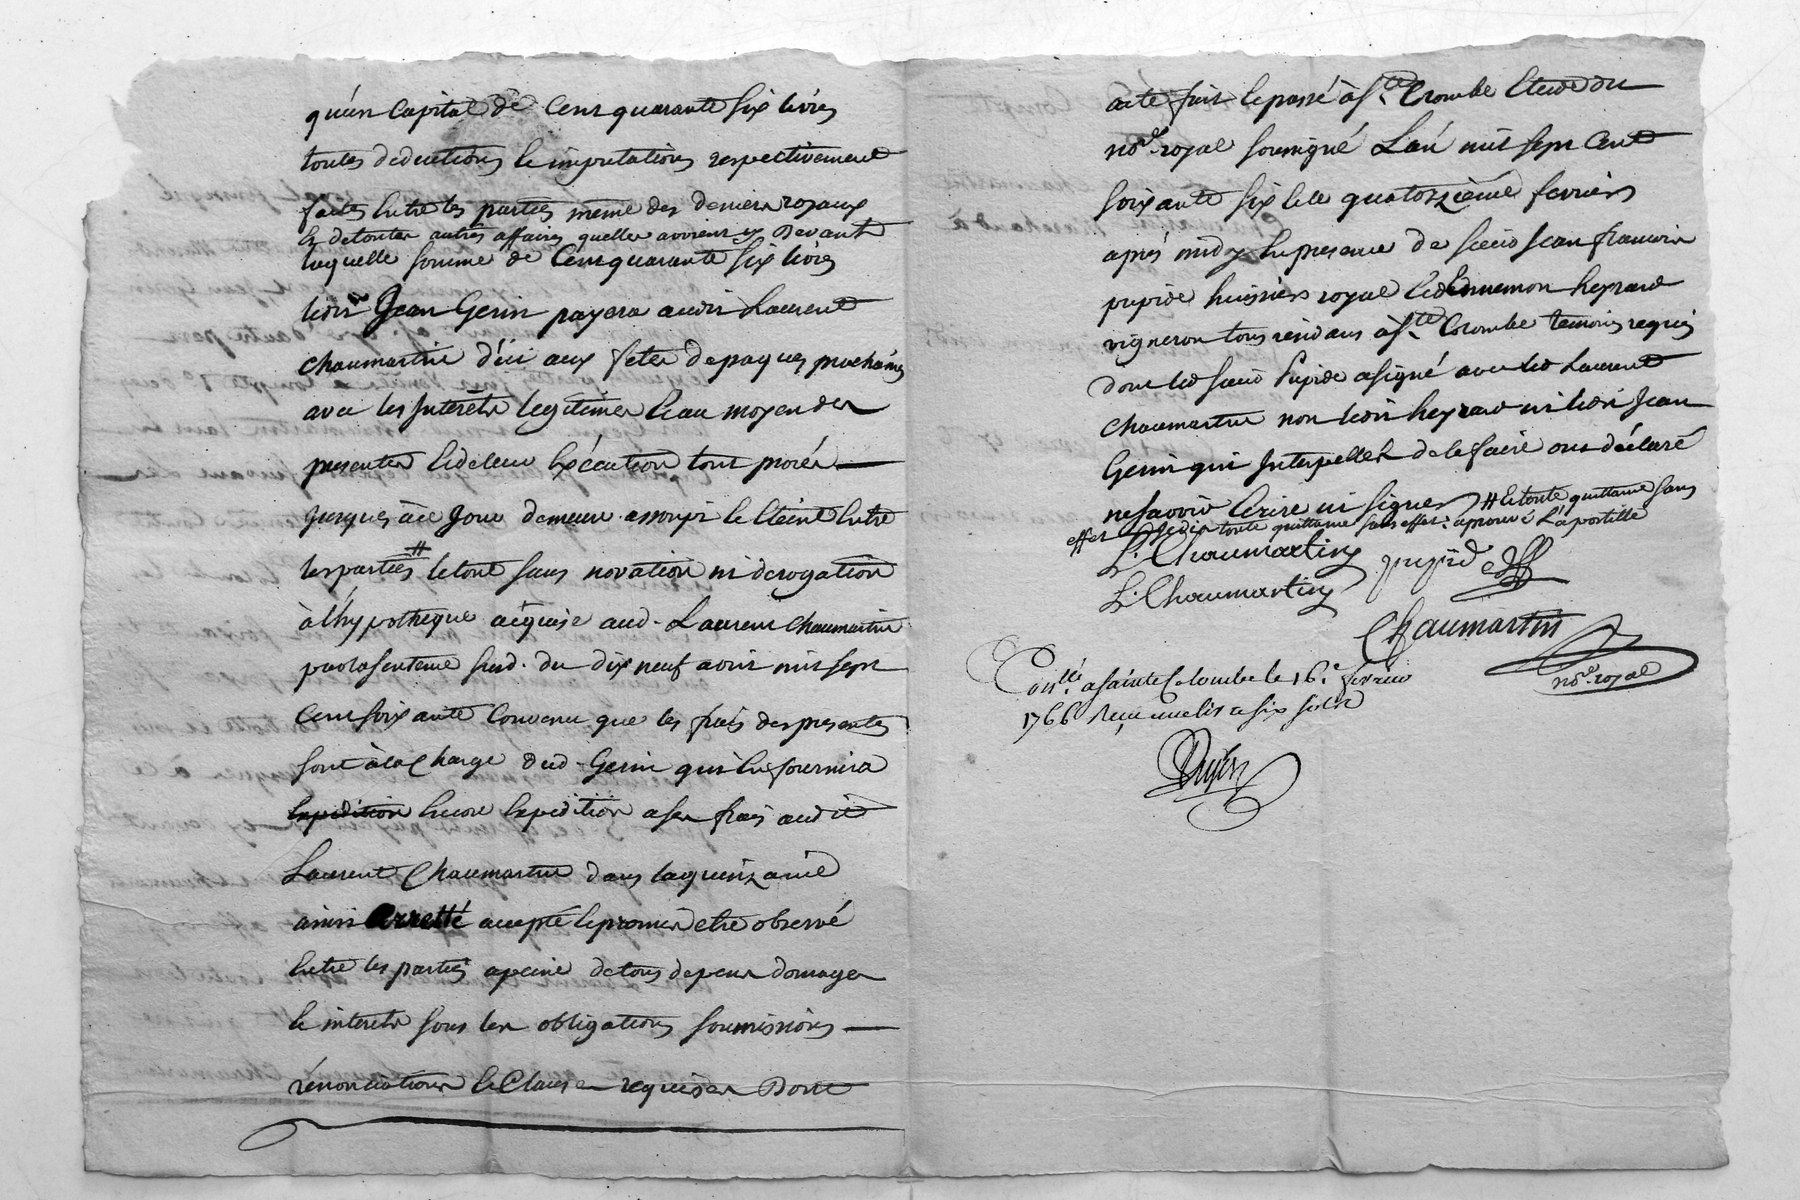 qu'un Capital de Cent quarante six livres
toutes deductions & imputations respectivement
faites Entre les parties meme des deniers royaux
& de toutes autres affaires quelles avoient cy devant
laquelle somme de Cent quarante six livres
Jean Genin payera audit Laurent
chaumartin d'ici aux fetes de paques prochaines
avec les Interets legitimes & au moyen des
presentes & de leur Execution tout procés
jusques à ce jour demeure assoupi & Eteint Entre
les parties # le tout sans novation ni derogation
à l'hypotheque acquise aud. Laurent chaumartin
par la sentence susd. du dix neuf avril mil sept
Cent soixante Convenu que les frais des presentes
sont à la Charge dud. Genin qui En fournira
Expedition Encore Expedition a ses frais audit
Laurent Chaumartin dans la quinzaine
ainsi Arretté accepté & promis etre observé
Entre les parties a peine de tous depens domages
& interets sous les obligations soumissions
rénonciations & Clauses requises Dont
acte fait & passé à Ste. Colombe Etude du
nore. royal soussigné L'an mil sept Cent
soixante six & le quatorzieme fevrier
aprés midy En presence de sieur Jean francois
pupide huissier royal & Ennemon heyraud
vigneron tous residans à Ste. Colombe temoins requis
dont led. sieur Pupide a signé avec led. Laurent
Chaumartin non ledit heyraud ni ledit Jean
Genin qui Interpellés de le faire ont déclaré
ne savoir Ecrire ni signer # & toute quittance sans
effet toute quittance sans effet. aprouvé L'apostille
L. Chaumartin pupide
L. Chaumartin
Chaumartin
nore. royal
Conllé. a sainte Colombe le 16e. fevrier
1766 Reçu six sols